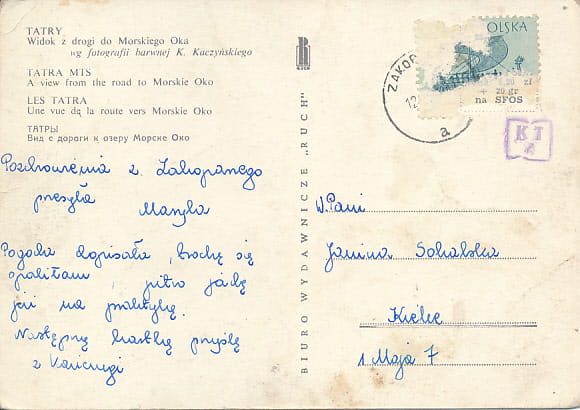 TATRY
Widok z drogi do Morskiego Oka
wg fotografii barwnej K. Kaczyńskiego
TATRA MTS
A view from the road to Morskie Oko
LES TATRA
Une vue dą la route vers Morskie Oko
ТАТРЫ
Вид с дороги к озеру Морске Око
Pozdrowienia z Zakopanego
przesyła
Maryla
Pogoda dopisała, trochę się
opaliłam, jutro jadę
już na praktykę.
Następną kartkę przyślę
z
BIURO WYDAWNICZE „RUCH"
R
RUCH
OLSKA
zł
+ 20 gr
na SFOS
ZAKOP
12
a
KT
W.Pani
Janina Sokalska
Kielce
1 Maja 7